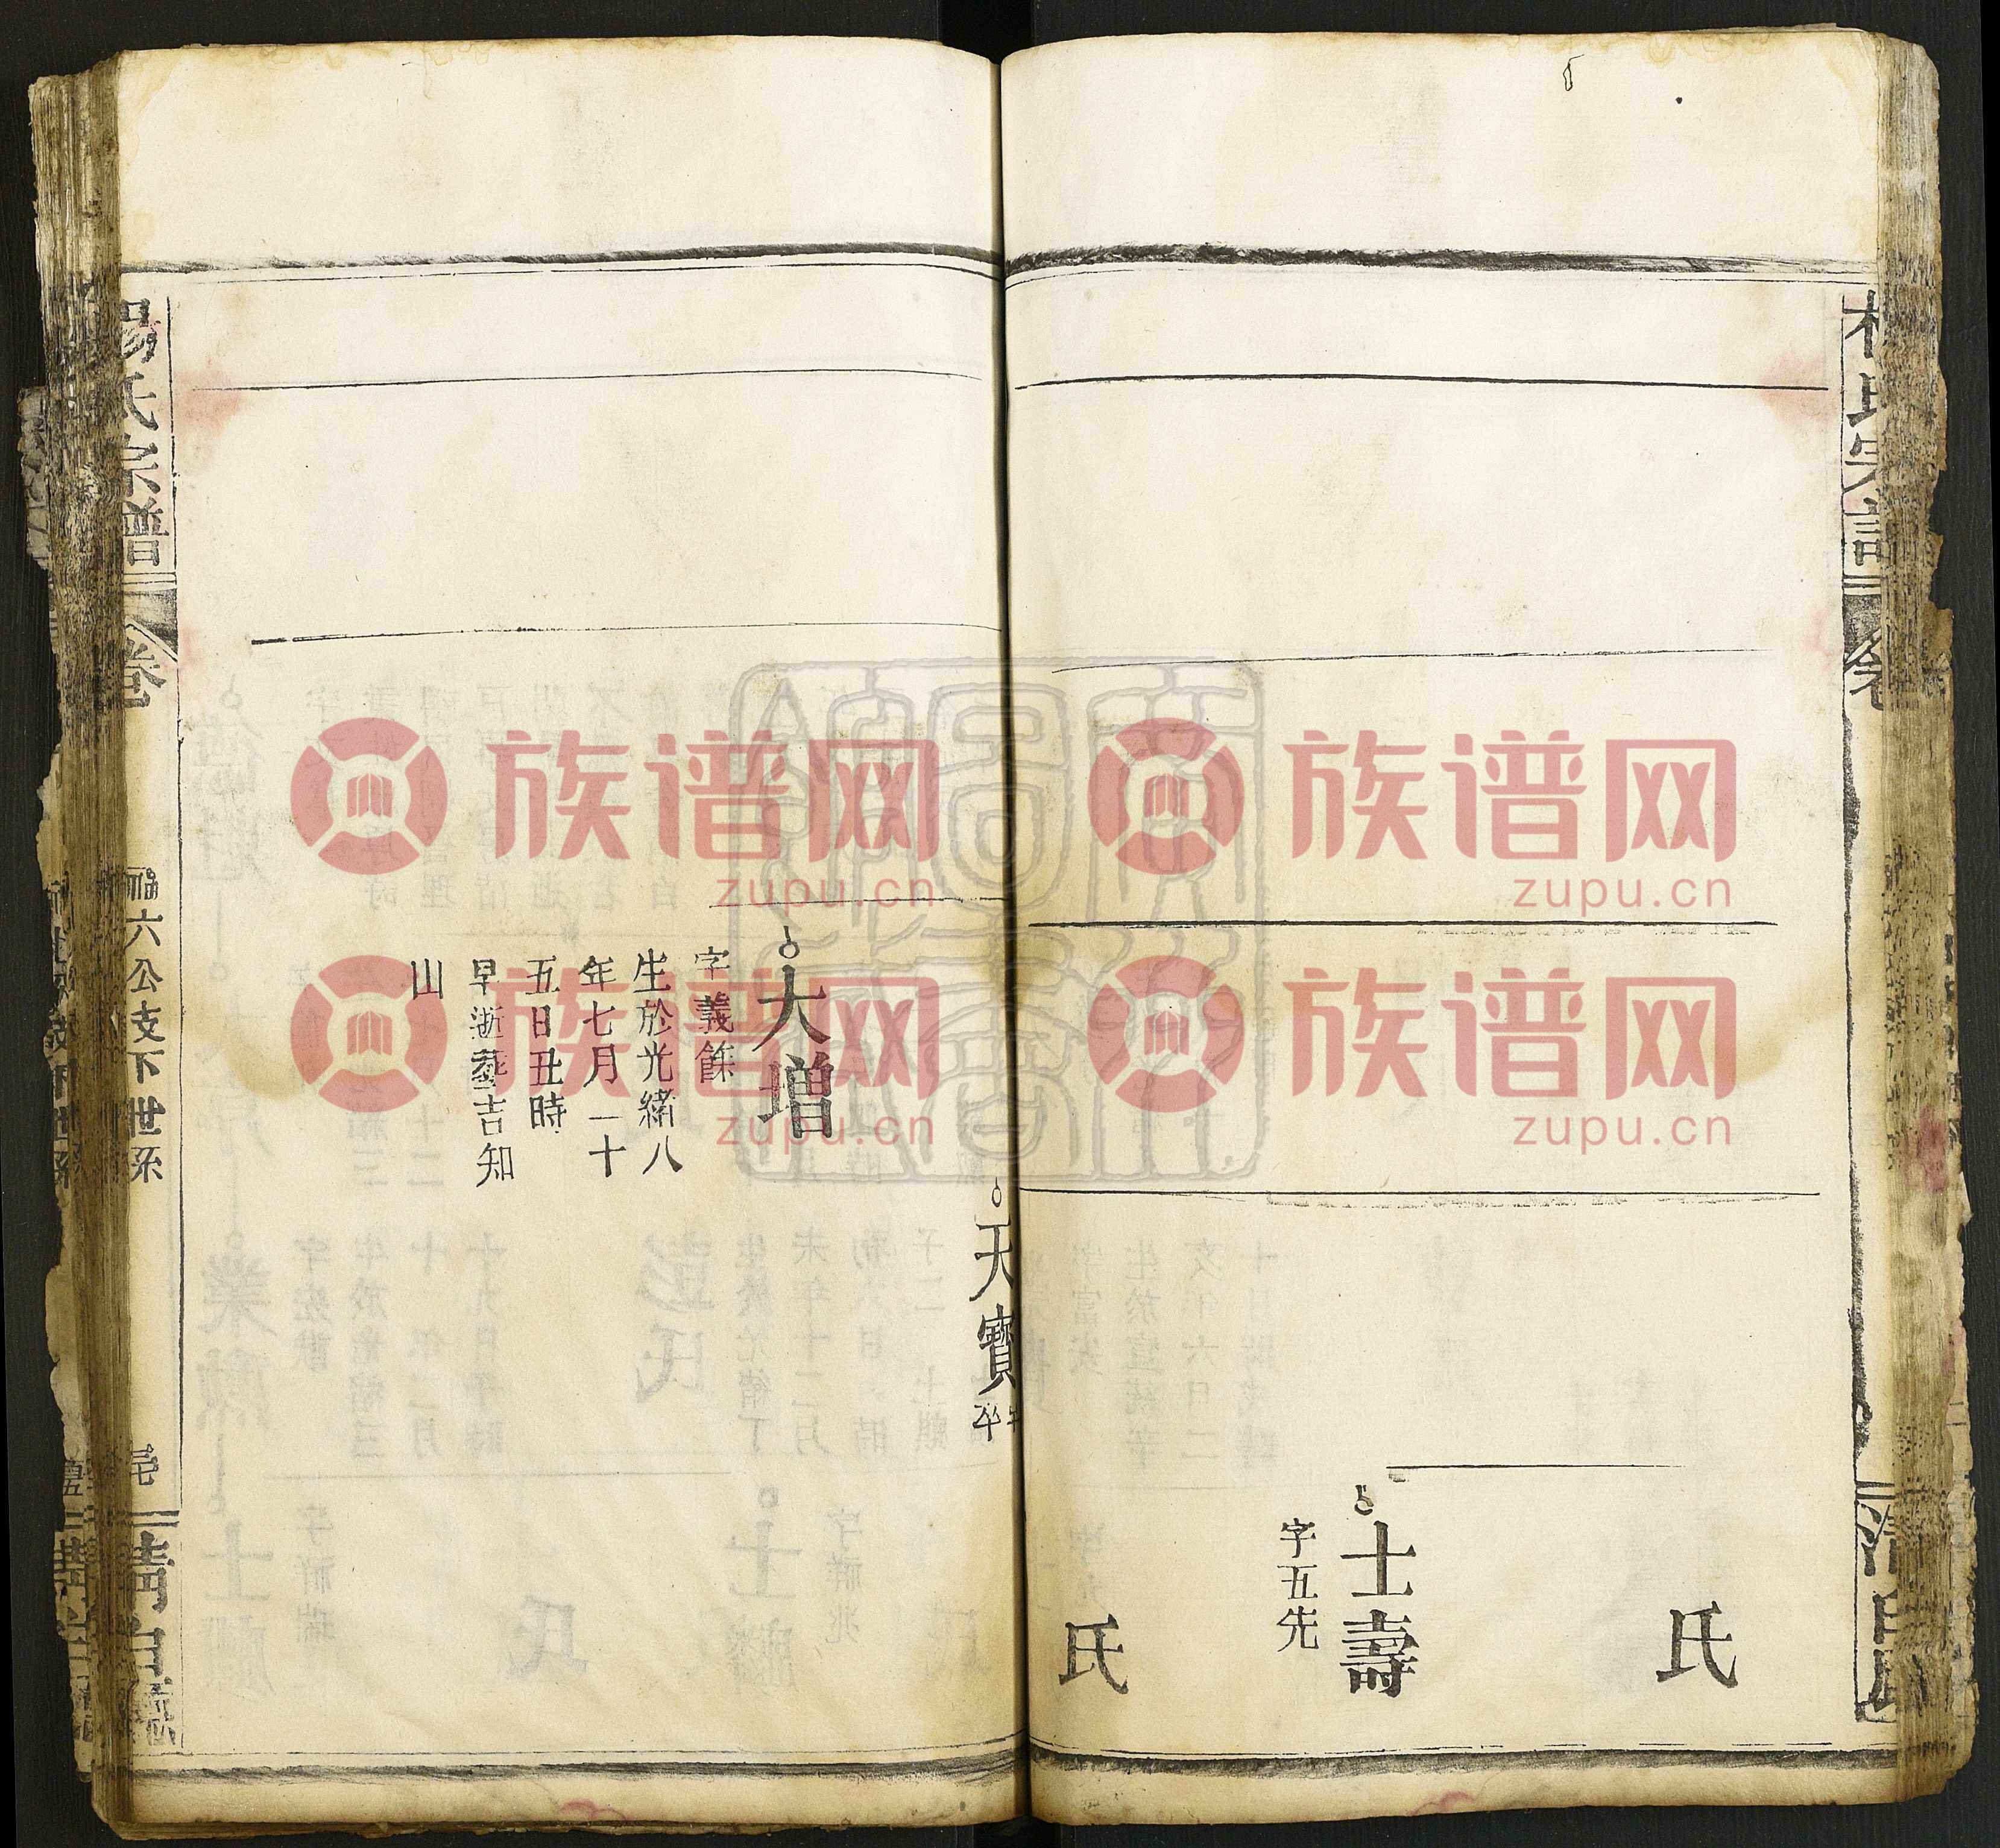 氏
士壽
字五先
氏
天寶
卒
大增
字義餘
生於光緒八
年七月一十
五日丑時
早逝葬吉知
山
楊氏宗譜
卷
福六公支下世系
清白
族谱网
zupu.cn
族谱网
zupu.cn
族谱网
zupu.cn
族谱网
zupu.cn